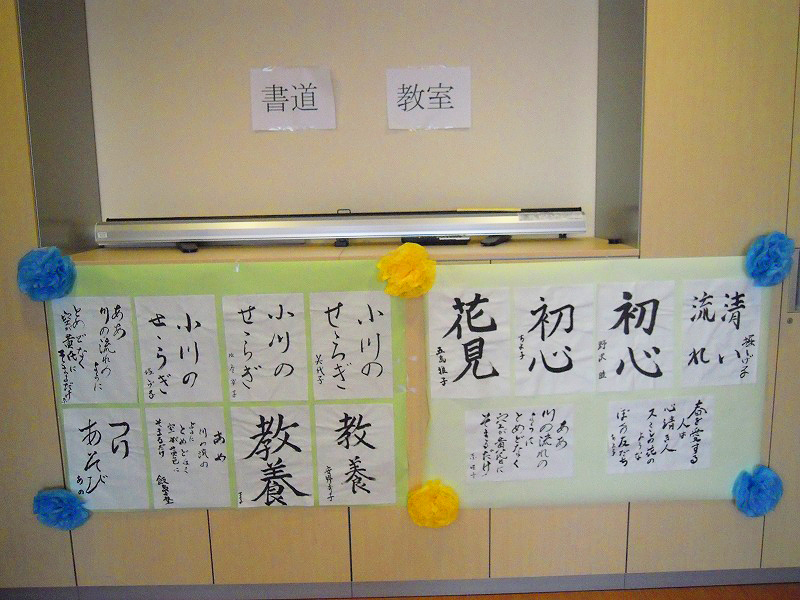 書道
教室
清い
流れ
初心
初心
花見
五島雅子
春を愛する
人は
心清き人
スミレの花の
ような
ぼくの友だち
ああ
川の流れの
ように
とめどなく
空が黄昏に
そまるだけ
小川の
せせらぎ
小川の
せせらぎ
小川の
せせらぎ
ああ
川の流れの
ように
とめどなく
空が黄昏に
そまるだけ
教養
教養
川の流の
ように
とめどなく
空が黄昏に
そまるだけ
あそび